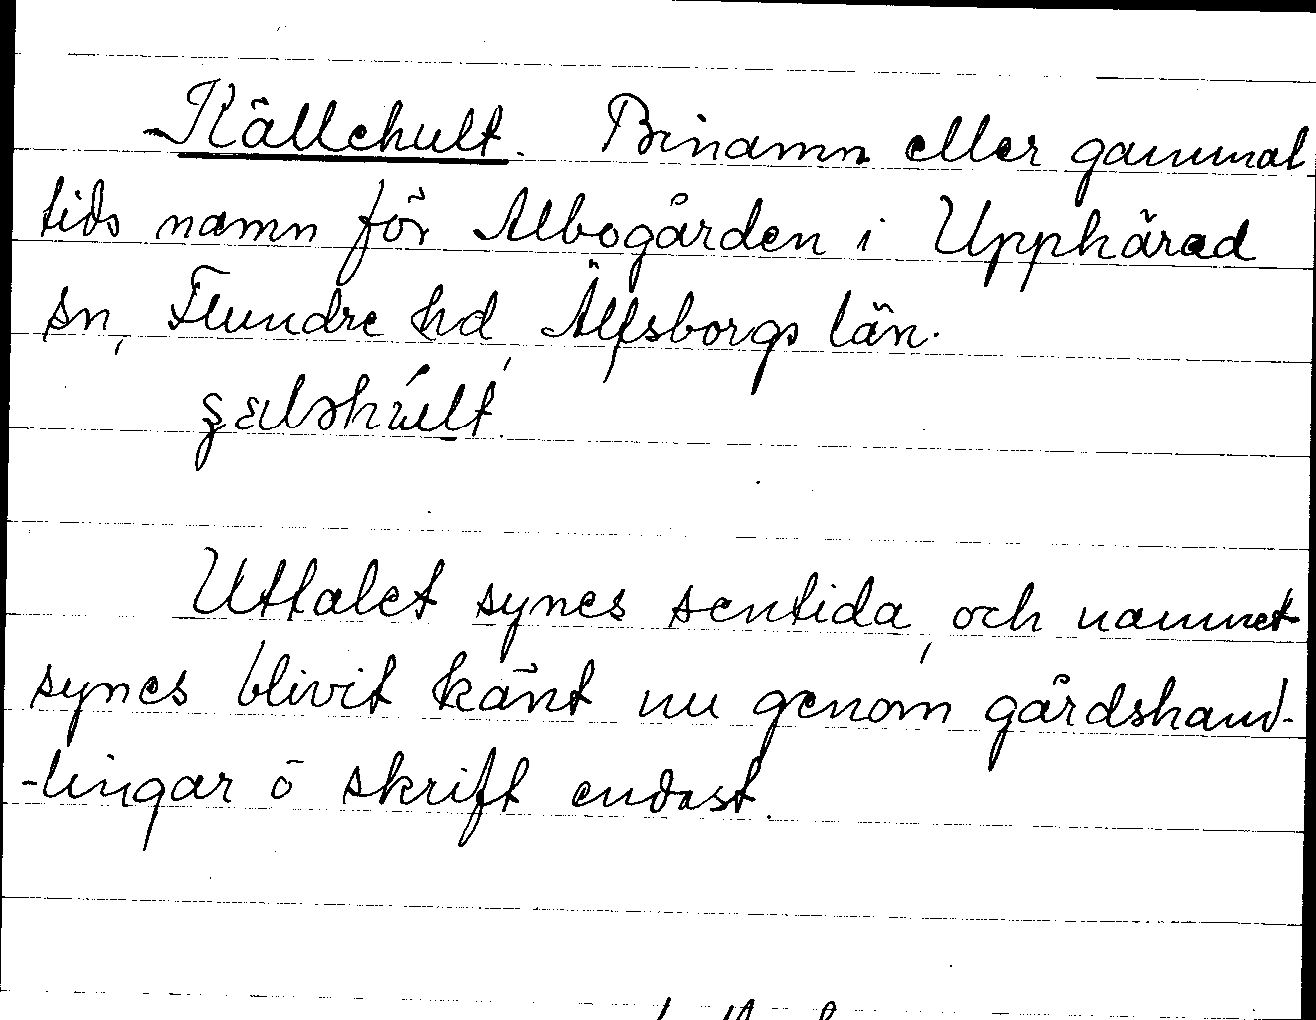 Källehult. Binamn eller gammal
tids namn för Albogården i Upphärad
sn, Flundre hd, Älfsborgs län.
Uttalet synes sentida, och namnet
synes blivit känt nu genom gårdshand-
-lingar o skrift endast.